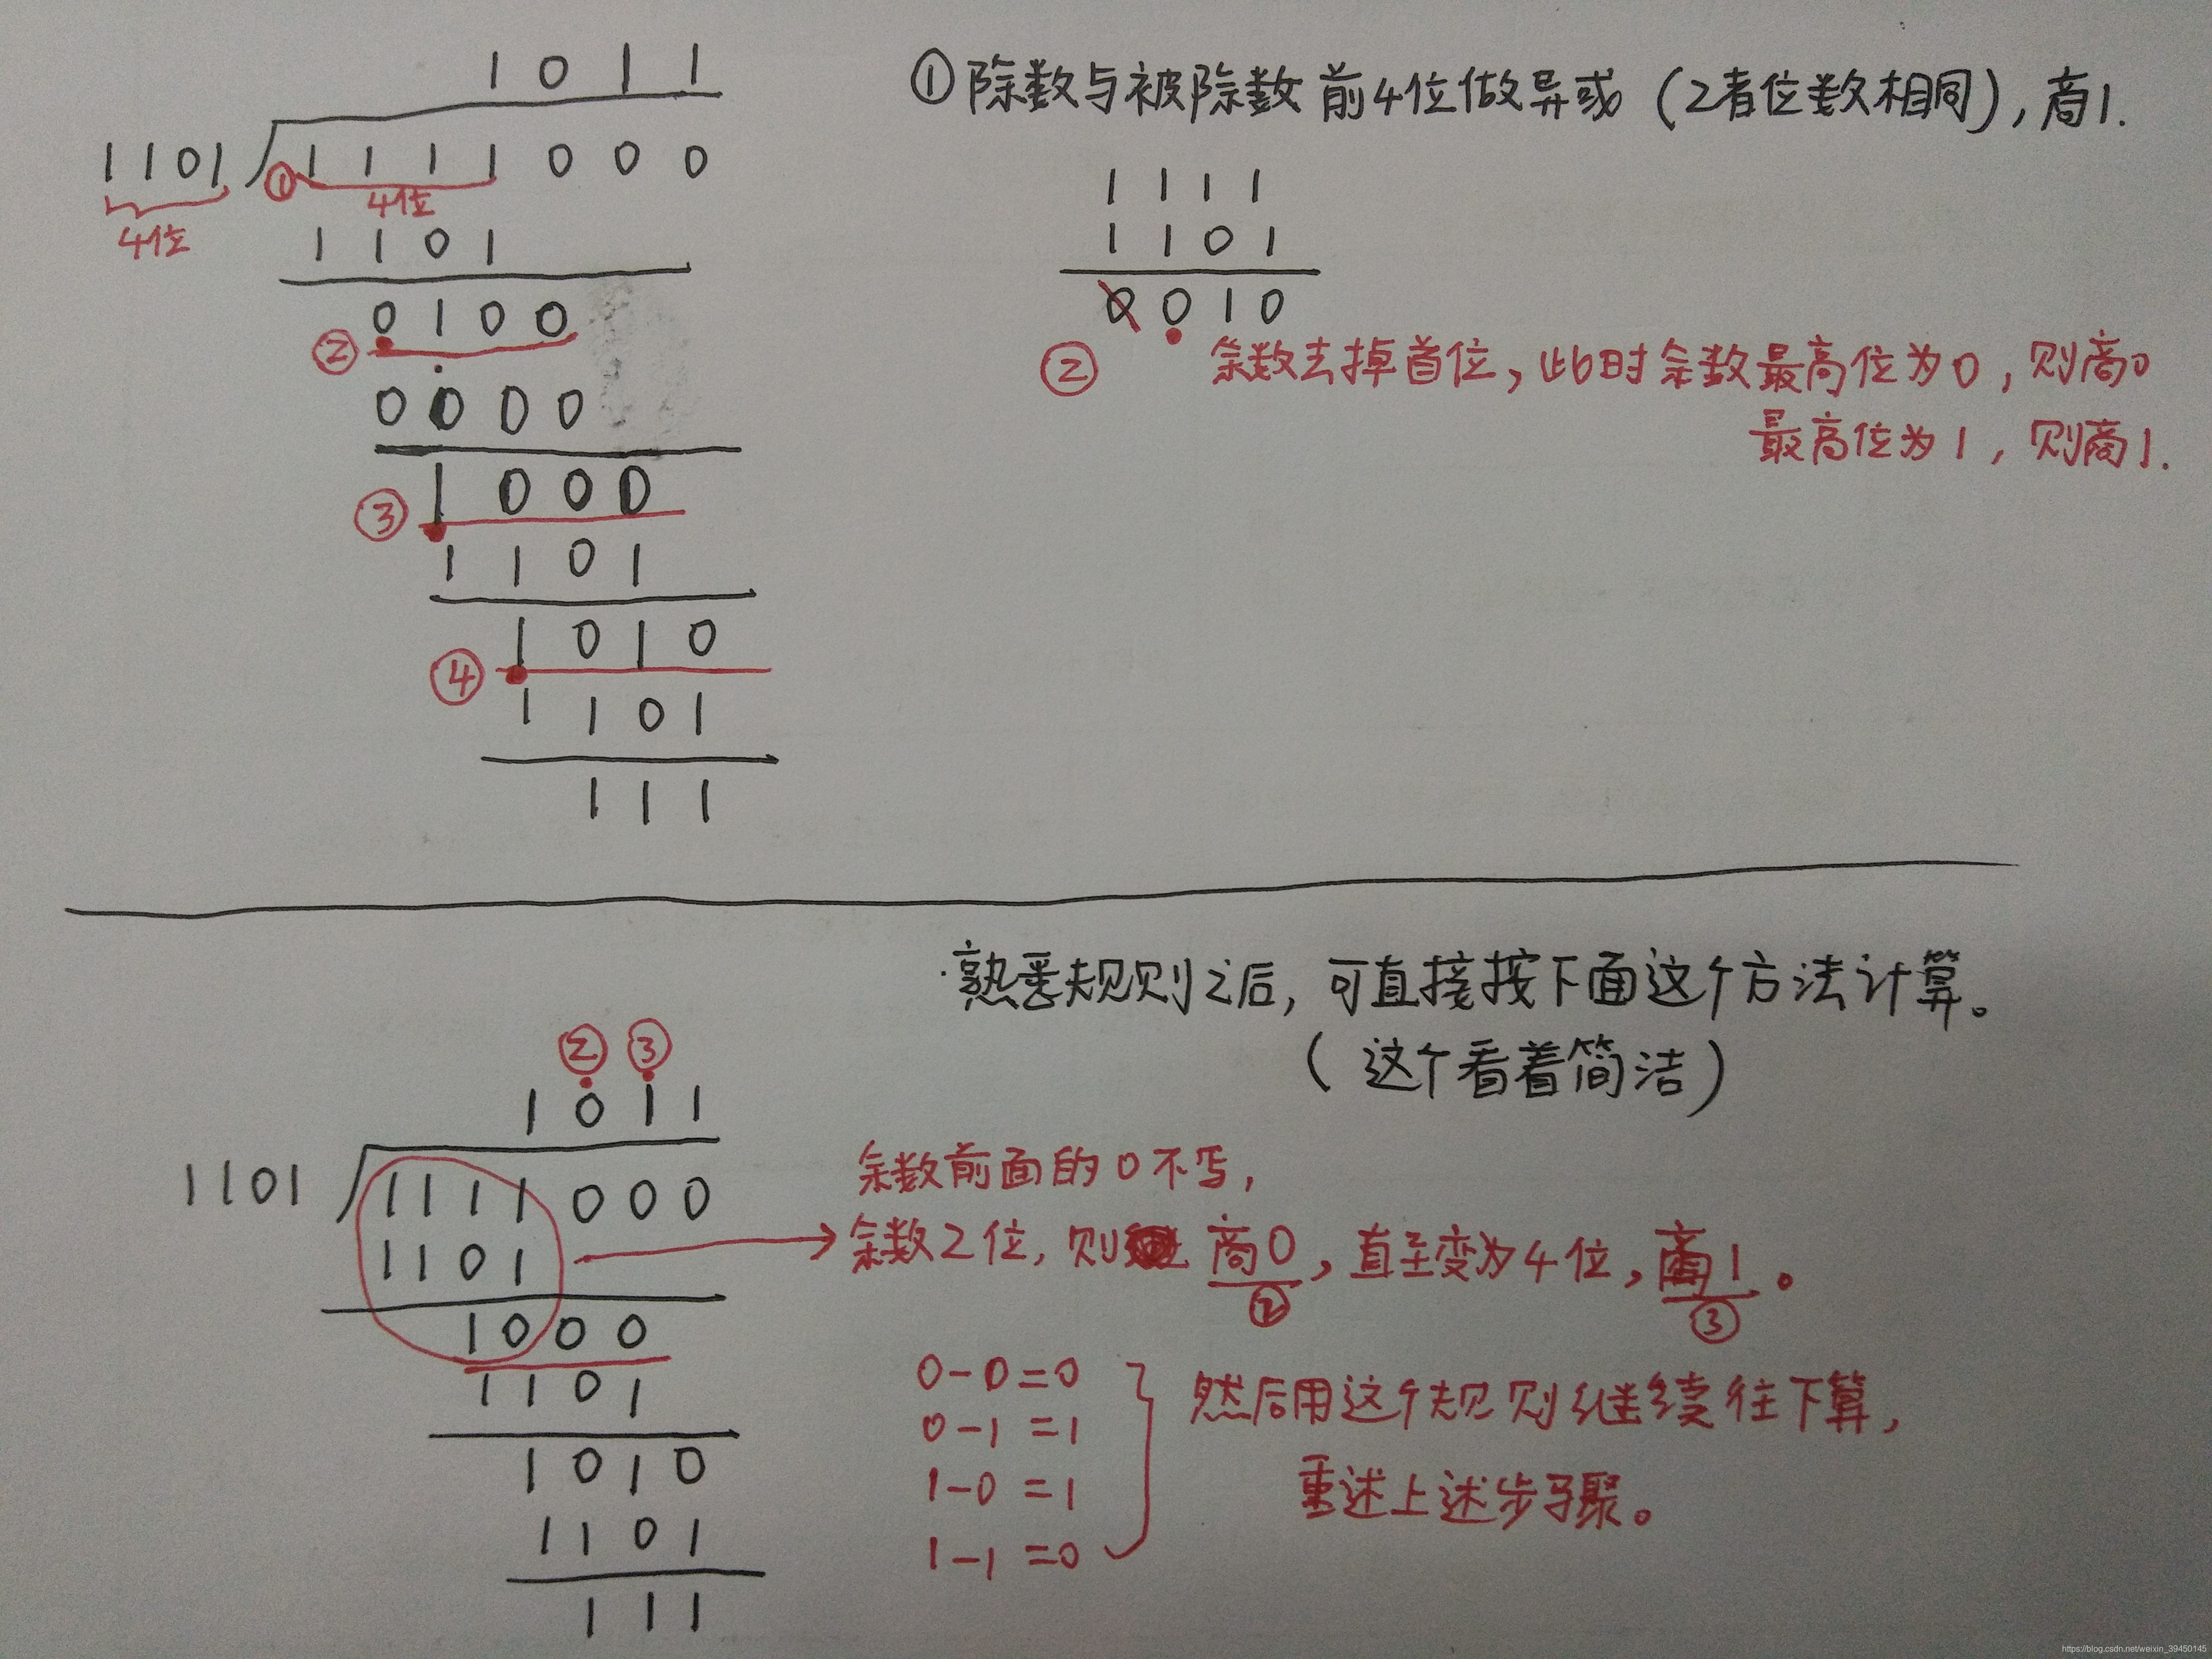 1 0 1 1
1101 1 1 1 1 0 0 0
① 4位
4位
1 1 0 1
0 1 0 0
②
0 0 0 0
1 0 0 0
③
1 1 0 1
1 0 1 0
④
1 1 0 1
1 1 1
①除数与被除数前4位做异或(2者位数相同),商1.
1 1 1 1
1 1 0 1
0 0 1 0
② 余数去掉首位,此时余数最高位为0,则商0
最高位为1,则商1.
熟悉规则之后,可直接按下面这个方法计算。
(这个看着简洁)
② ③
1 0 1 1
1101 1 1 1 1 0 0 0
1 1 0 1
1 0 0 0
1 1 0 1
1 0 1 0
1 1 0 1
1 1 1
余数前面的0不写,
余数2位,则商0,直至变为4位,商1。
② ③
0-0=0
0-1=1
1-0=1
1-1=0
然后用这个规则继续往下算,
重述上述步骤。
https://blog.csdn.net/weixin_39450145